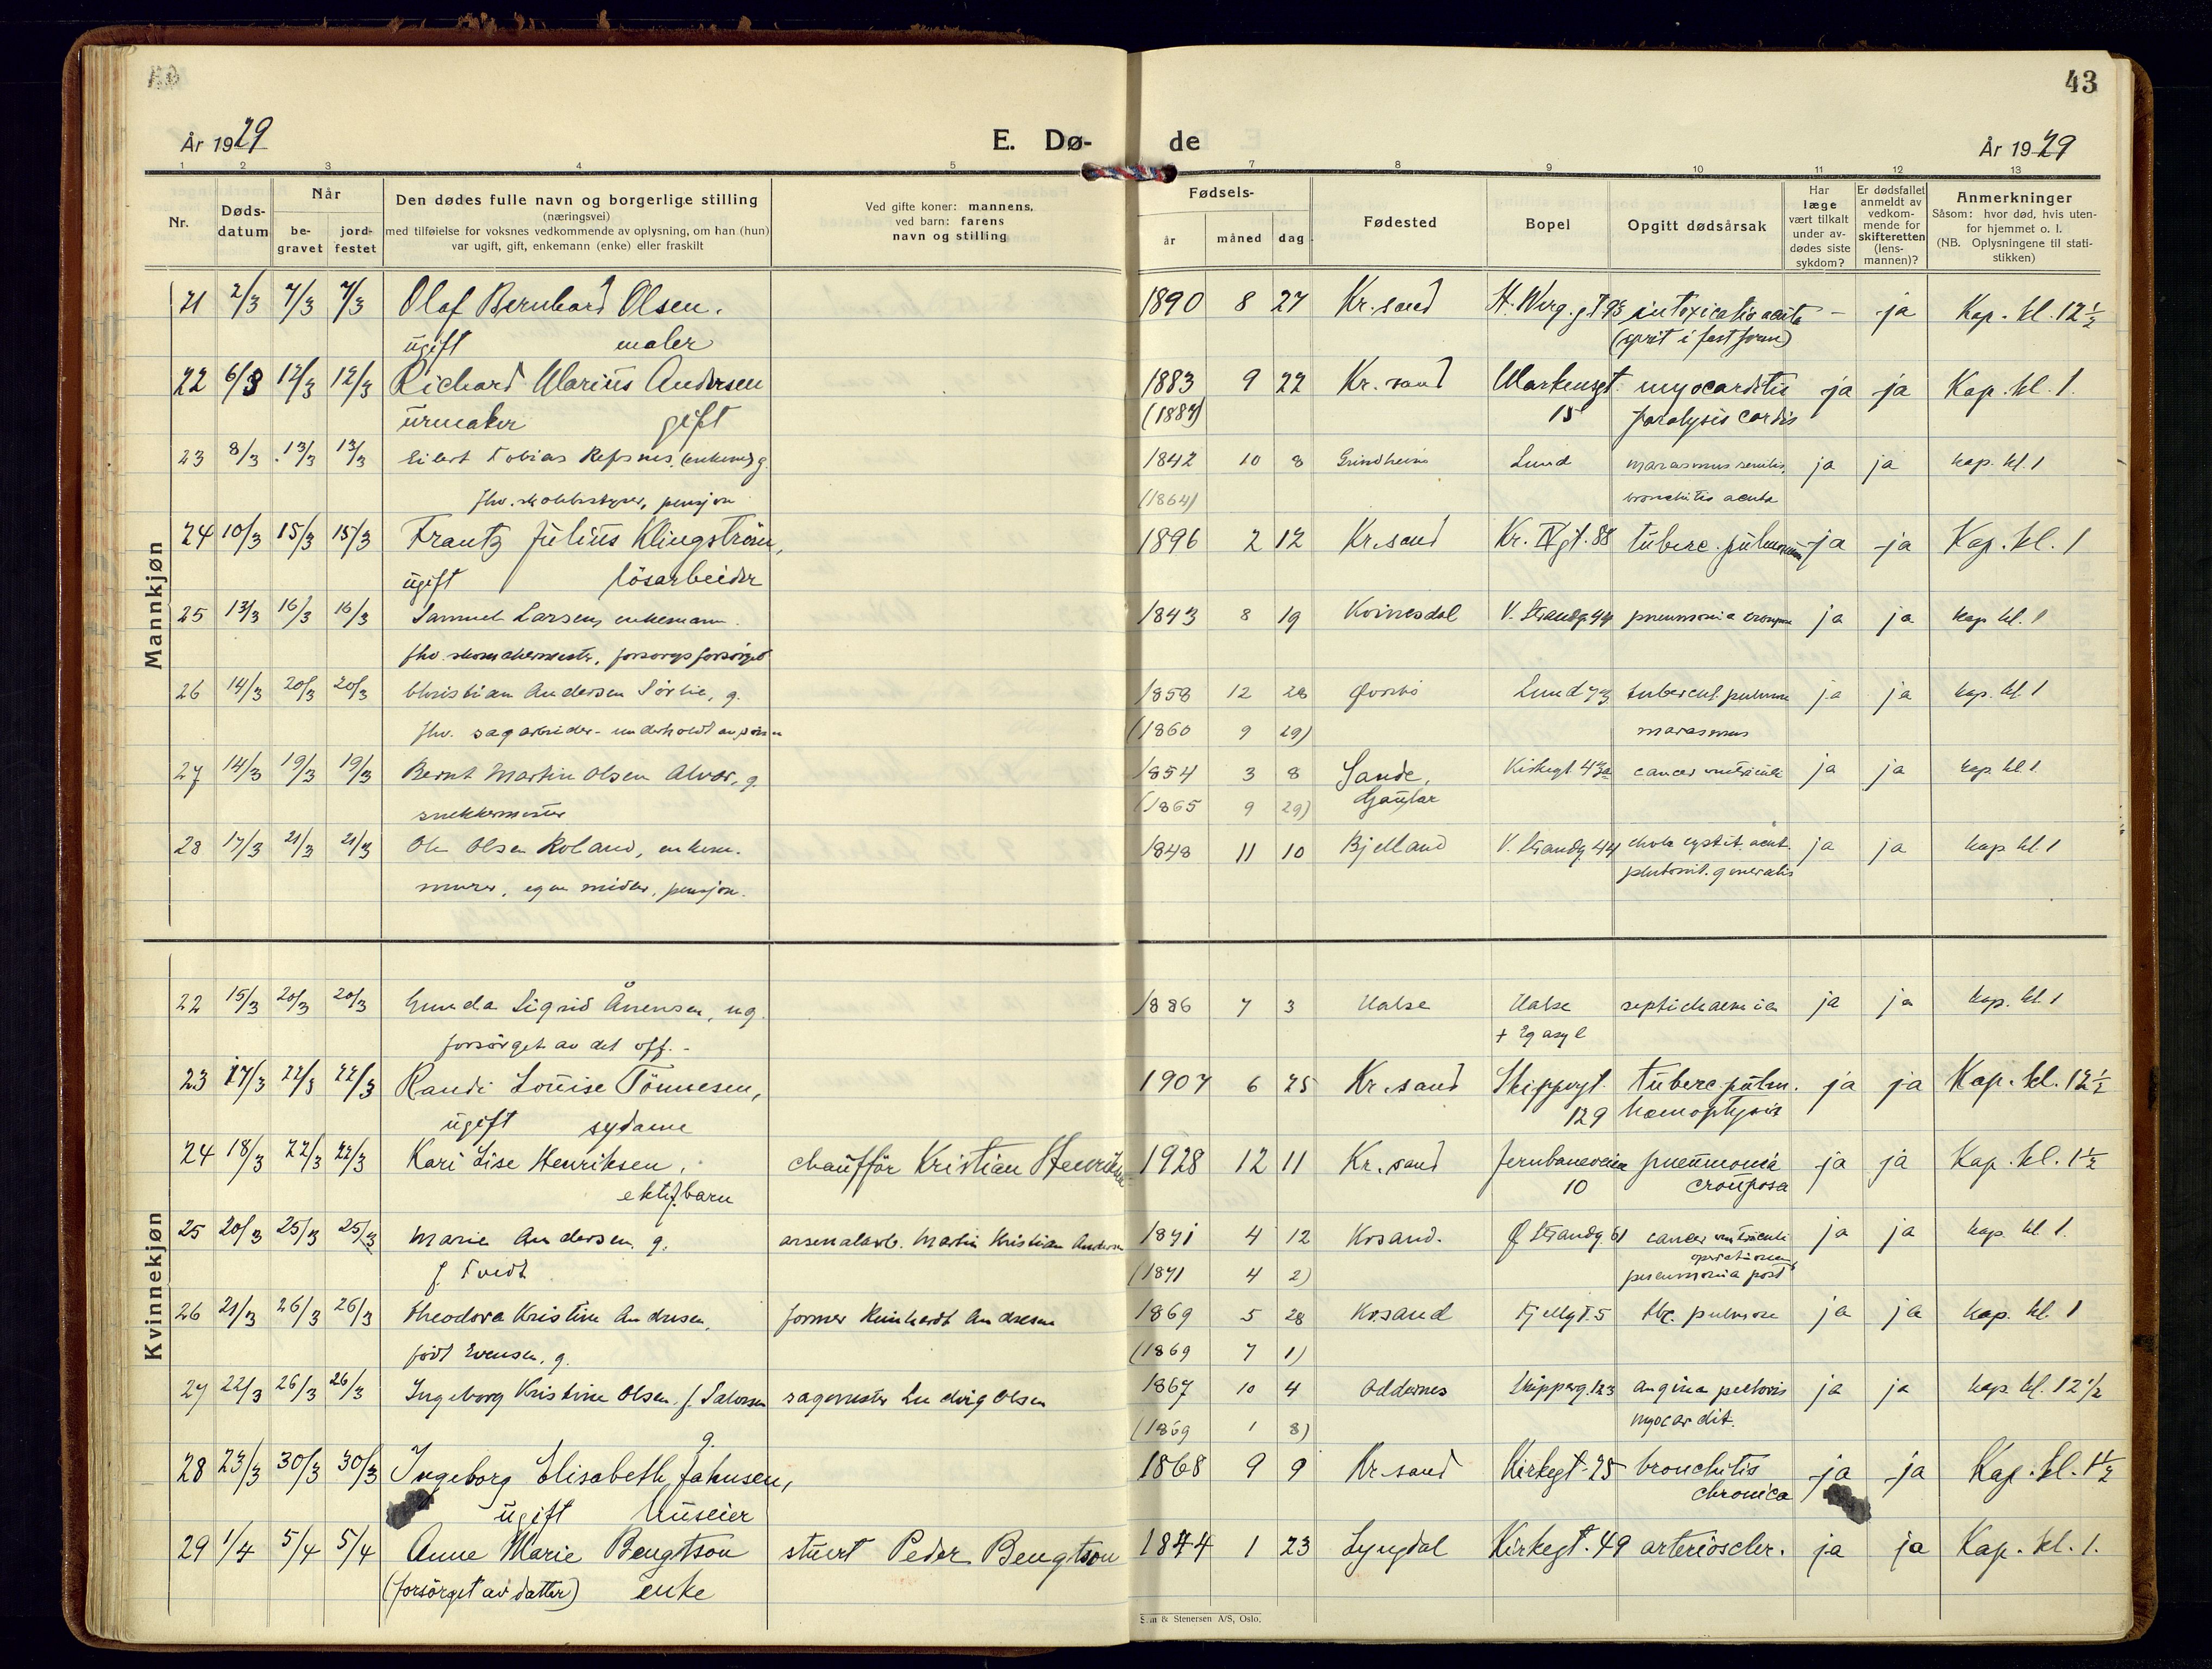 43
År 1929
E. Dø-
de
År 1929
1 2 3 4 5 7 8 9 10 11 12 13
Nr.
Døds-
datum
Når
be-
gravet
jord-
festet
Den dødes fulle navn og borgerlige stilling
(næringsvei)
med tilføielse for voksnes vedkommende av oplysning, om han (hun)
var ugift, gift, enkemann (enke) eller fraskilt
Ved gifte koner: mannens,
ved barn: farens
navn og stilling
Fødsels-
år måned dag
Fødested
Bopel
Opgitt dødsårsak
Har
læge
vært tilkalt
under av-
dødes siste
sykdom?
Er dødsfallet
anmeldt av
vedkom-
mende for
skifteretten
(lens-
mannen)?
Anmerkninger
Såsom: hvor død, hvis uten-
for hjemmet o. l.
(NB. Oplysningene til stati-
stikken)
Mannkjøn
21 2/3 7/3 7/3 Olaf Bernhard Olsen. 1890 8 27 Kr.sand H. Werg.gt 93 intoxicatio acuta - ja Kap. kl. 12 1/2
ugift maler (sprit i fast form)
22 6/3 12/3 12/3 Richard Marius Andersen 1883 9 22 Kr.sand Markensgt. myocarditis ja ja Kap. kl. 1.
urmaker gift (1884) 15 paralysis cordis
23 8/3 13/3 13/3 Eilert Tobias Refsnes, (enkem) g. 1842 10 8 Grindheim Lund marasmus senilis, ja ja kap. kl. 1
fhv. skolebestyrer, pensjon (1864) bronchitis acuta
24 10/3 15/3 15/3 Frantz Julius Klingström, 1896 2 12 Kr.sand Kr. IV gt. 88 tuberc. pulmonum ja ja Kap. kl. 1
ugift løsarbeider
25 13/3 16/3 16/3 Samuel Larsen, enkemann. 1843 8 19 Kvinesdal V. Strandg. 44 pneumonia crouposa ja ja kap kl. 1
fhv. skomakermester, forsorgsforsørget
26 14/3 20/3 20/3 Christian Andersen Sørlie, g. 1858 12 28 Øvrebø Lund 73 tubercul. pulmon ja ja kap. kl. 1
fhv. sagarbeider - underholdt av sønn (1860 9 29) marasmus
27 14/3 19/3 19/3 Bernt Martin Olsen Alvær, g. 1854 3 8 Sande, Kirkegt 43a cancer ventriculi ja ja kap kl 1.
snekkermester (1865 9 29) Gaular
28 17/3 21/3 21/3 Ole Olsen Roland, enkem. 1848 11 10 Bjelland V. Strandg 44 cholecystit. acut. ja ja kap kl 1
murer, egne midler, pensjon. peritonit. generalis
Kvinnekjøn
22 15/3 20/3 20/3 Gunda Sigrid Ånensen, ug. 1886 7 3 Halse Halse septichaemia ja ja kap. kl. 1
forsørget av det off. - + Eg asyl
23 17/3 22/3 22/3 Randi Louise Tönnesen, 1907 6 25 Kr.sand Skippergt. tuberc. pulm. ja ja Kap. kl. 12 1/2
ugift sydame 129 hæmoptysis
24 18/3 22/3 22/3 Kari Lise Henriksen, chauffør Kristian Henriksen 1928 12 11 Kr.sand Jernbaneveien pneumonia ja ja Kap. kl. 1 1/2
ektef. barn 10 crouposa
25 20/3 25/3 25/3 Marie Andersen g. arsenalarb. Martin Kristian Andersen 1841 4 12 Krsand. Ø. Strandg. 61 cancer ventriculi ja ja kap. kl 1.
f. Tvedt (1871 4 2) pneumonia post operationem
26 21/3 26/3 26/3 Theodora Kristine Andresen, former Reinhardt Andresen 1869 5 28 Kr.sand Fjellgt. 5 tbc. pulmon ja ja kap. kl 1
født Evensen, g. (1869 7 1)
27 22/3 26/3 26/3 Ingeborg Kristine Olsen, f. Salvesen sagmester Ludvig Olsen 1867 10 4 Oddernes Skipperg. 123 angina pectoris ja ja kap. kl. 12 1/2
g. (1869 1 8) myocardit.
28 23/3 30/3 30/3 Ingeborg Elisabeth Jahnsen, 1868 9 9 Kr.sand Kirkegt. 25 bronchitis ja ja Kap. kl. 1 1/2
ugift huseier chronica
29 1/4 5/4 5/4 Anne Marie Bengtson stuert Peder Bengtson 1844 1 23 Lyngdal Kirkegt. 49 arterioscler. ja ja Kap. kl. 1.
(forsörget av datter) enke
& Stenersen A/S, Oslo.